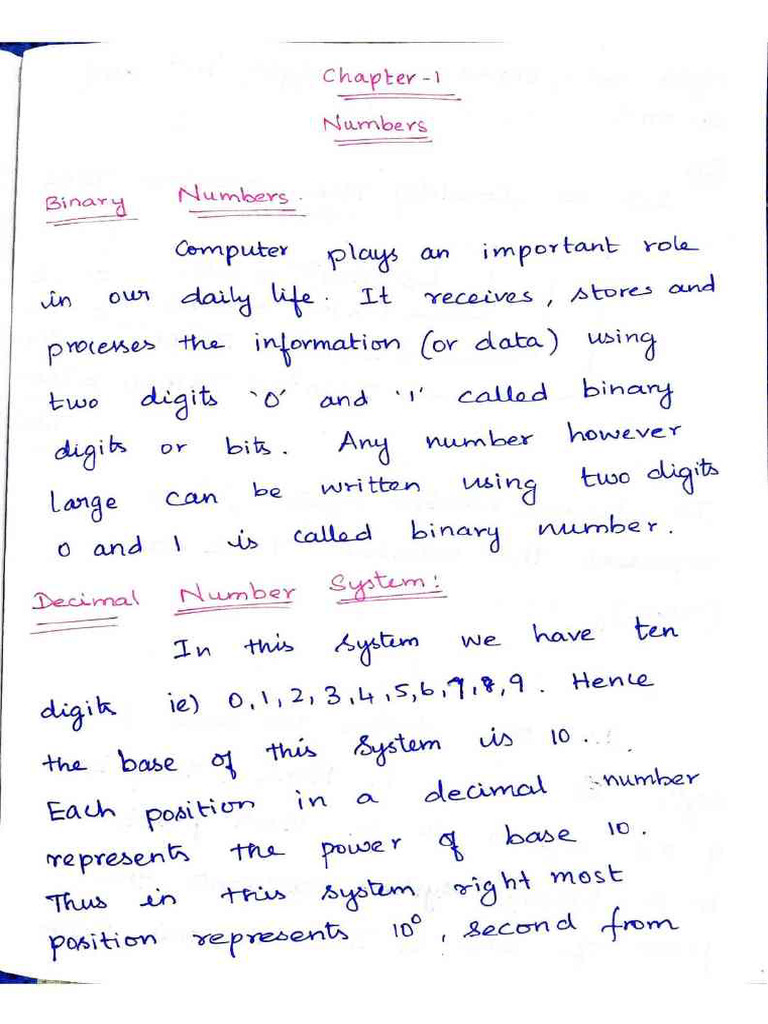 Chapter-1
Numbers
Binary Numbers.
Computer plays an important role
in our daily life. It receives, stores and
processes the information (or data) using
two digits '0' and '1' called binary
digits or bits. Any number however
large can be written using two digits
0 and 1 is called binary number.
Decimal Number System:
In this system we have ten
digits ie) 0,1,2,3,4,5,6,7,8,9. Hence
the base of this system is 10.
Each position in a decimal number
represents the power of base 10.
Thus in this system right most
position represents 10⁰, second from